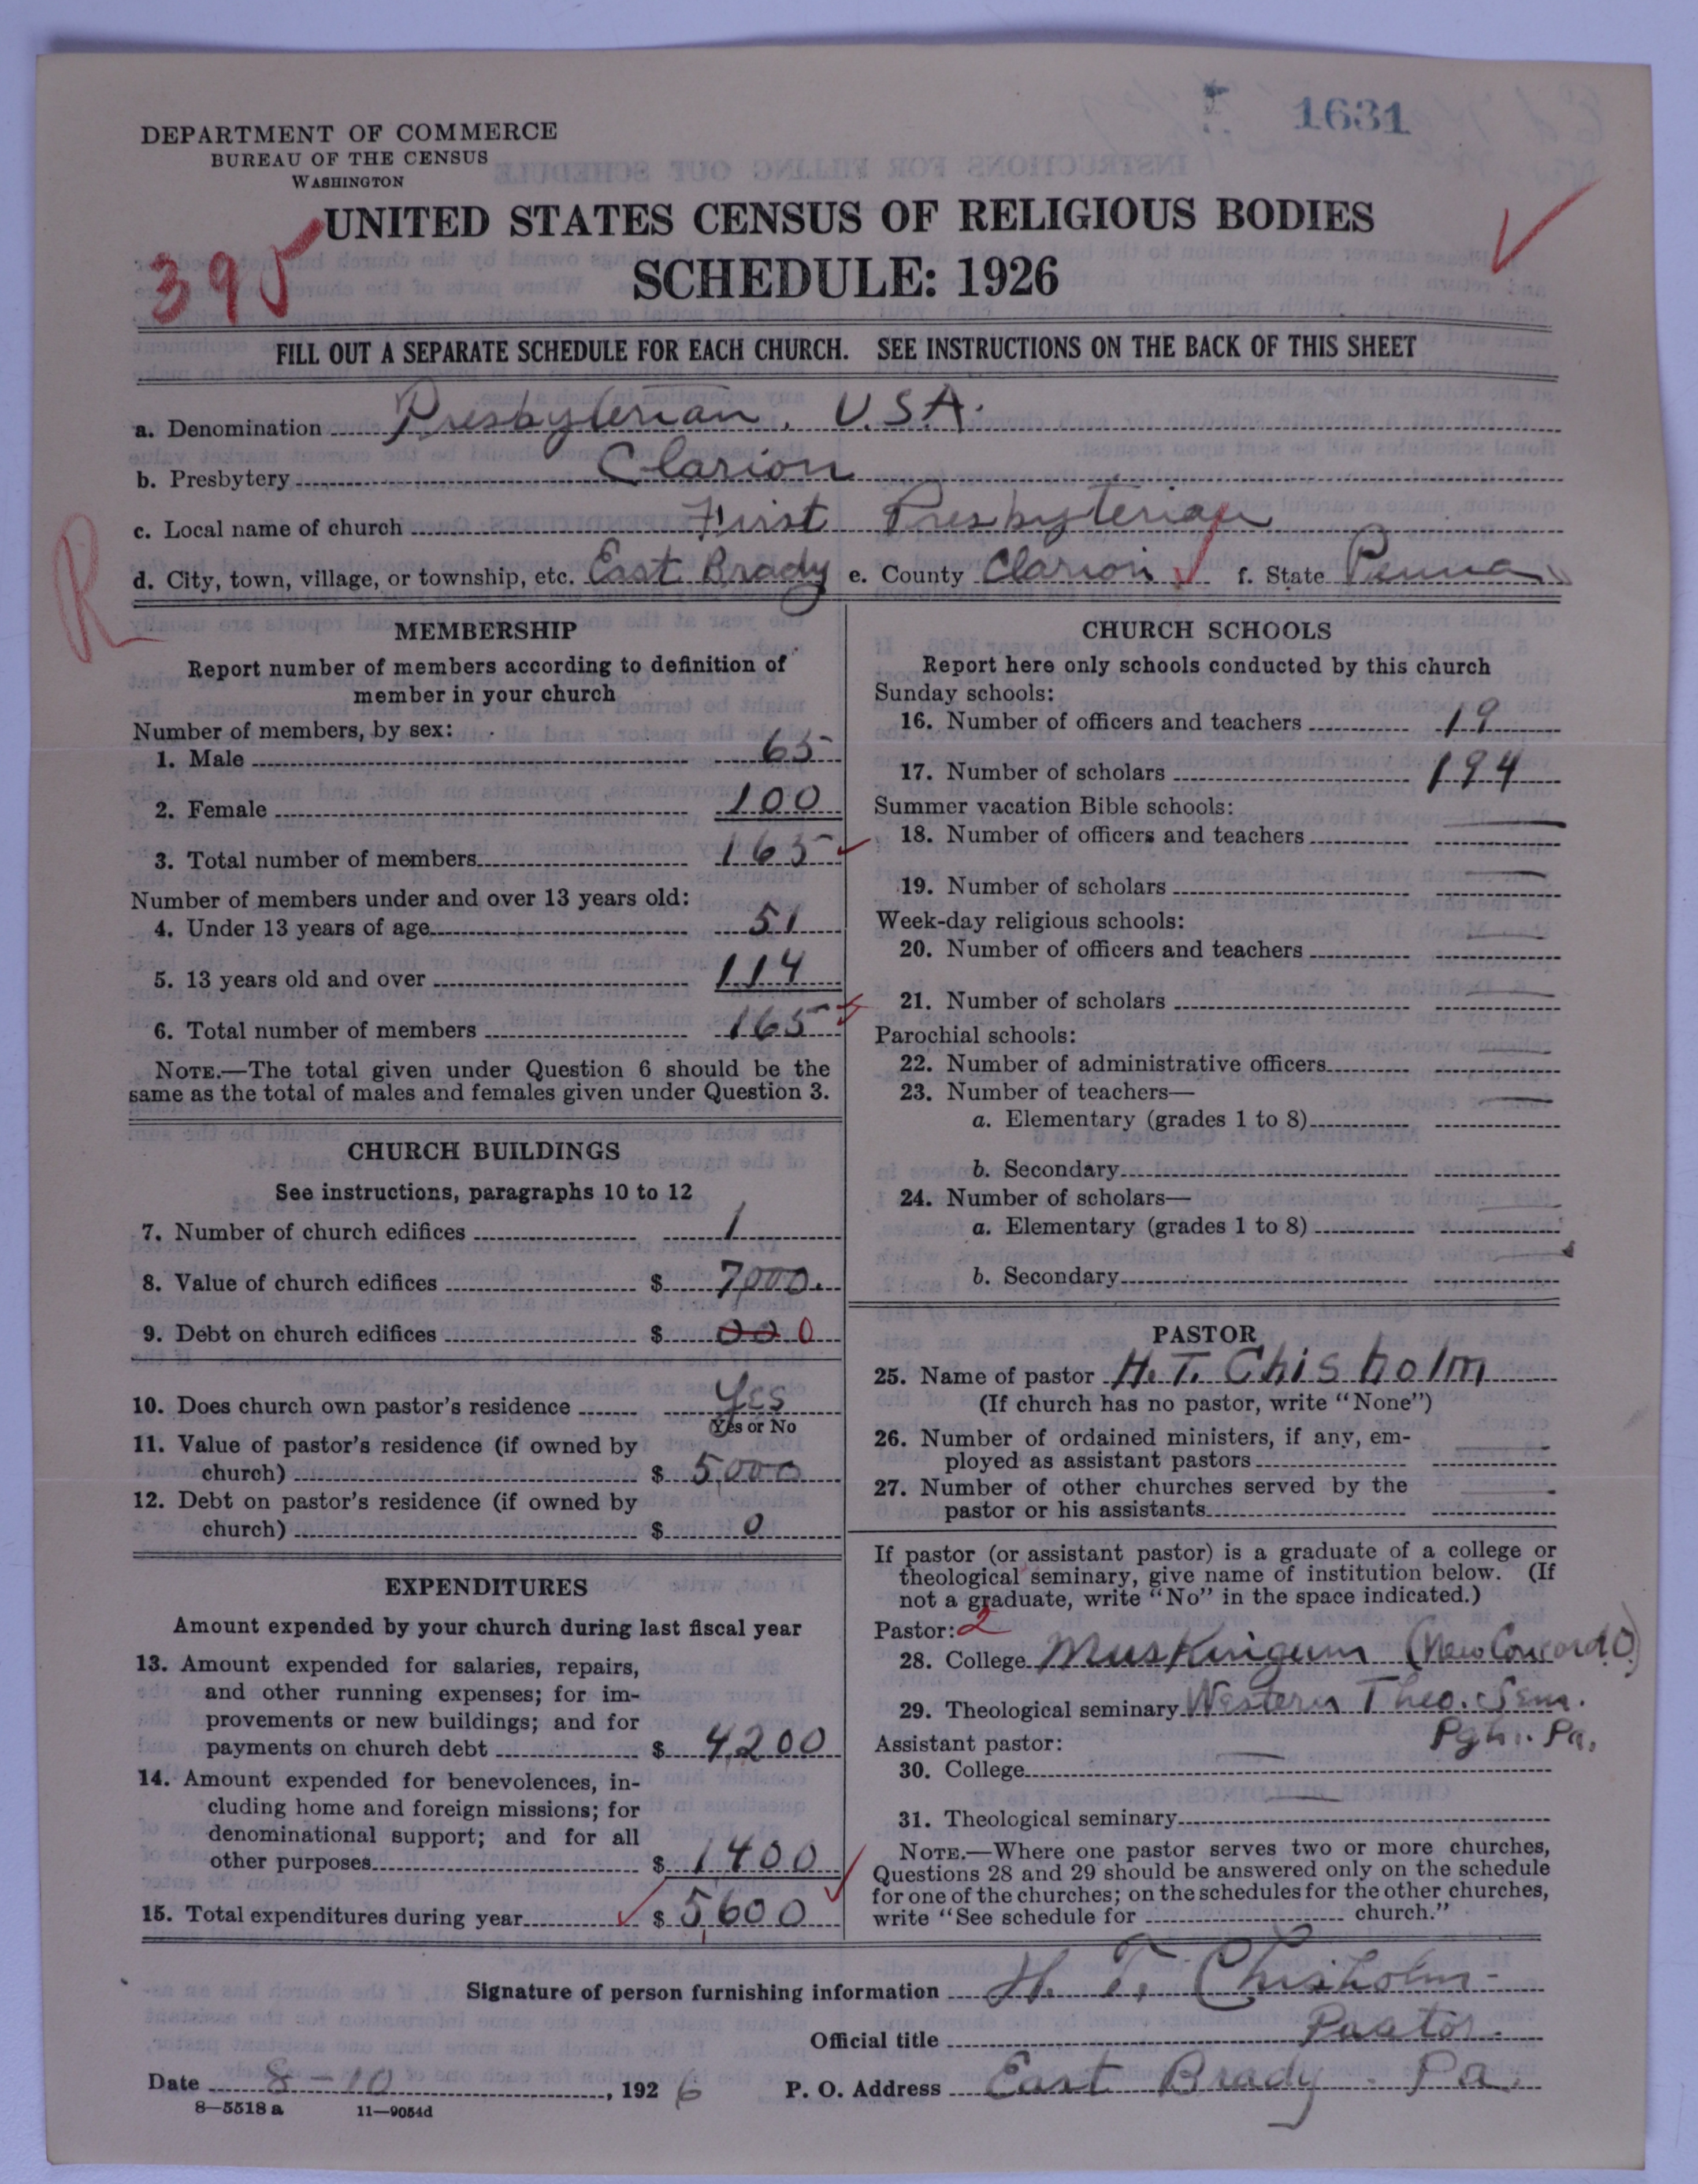 1631
DEPARTMENT OF COMMERCE
BUREAU OF THE CENSUS
WASHINGTON
UNITED STATES CENSUS OF RELIGIOUS BODIES
395
SCHEDULE: 1926
FILL OUT A SEPARATE SCHEDULE FOR EACH CHURCH. SEE INSTRUCTIONS ON THE BACK OF THIS SHEET
a. Denomination Presbyterian, U.S.A.
b. Presbytery Clarion
c. Local name of church First Presbyterian
d. City, town, village, or township, etc. East Brady e. County Clarion f. State Penna
R
MEMBERSHIP
Report number of members according to definition of
member in your church
Number of members, by sex:
1. Male 65
2. Female 100
3. Total number of members 165
Number of members under and over 13 years old:
4. Under 13 years of age 51
5. 13 years old and over 114
6. Total number of members 165
NOTE.—The total given under Question 6 should be the
same as the total of males and females given under Question 3.
CHURCH BUILDINGS
See instructions, paragraphs 10 to 12
7. Number of church edifices 1
8. Value of church edifices $ 7000.
9. Debt on church edifices $ 000 0
10. Does church own pastor's residence Yes
Yes or No
11. Value of pastor's residence (if owned by
church) $ 5,000
12. Debt on pastor's residence (if owned by
church) $ 0
EXPENDITURES
Amount expended by your church during last fiscal year
13. Amount expended for salaries, repairs,
and other running expenses; for im-
provements or new buildings; and for
payments on church debt $ 4,200
14. Amount expended for benevolences, in-
cluding home and foreign missions; for
denominational support; and for all
other purposes $ 1400
15. Total expenditures during year $ 5,600
CHURCH SCHOOLS
Report here only schools conducted by this church
Sunday schools:
16. Number of officers and teachers 19
17. Number of scholars 194
Summer vacation Bible schools:
18. Number of officers and teachers —
19. Number of scholars —
Week-day religious schools:
20. Number of officers and teachers —
21. Number of scholars —
Parochial schools:
22. Number of administrative officers —
23. Number of teachers—
a. Elementary (grades 1 to 8) —
b. Secondary —
24. Number of scholars—
a. Elementary (grades 1 to 8) —
b. Secondary —
PASTOR
25. Name of pastor H. T. Chisholm
(If church has no pastor, write "None")
26. Number of ordained ministers, if any, em-
ployed as assistant pastors —
27. Number of other churches served by the
pastor or his assistants —
If pastor (or assistant pastor) is a graduate of a college or
theological seminary, give name of institution below. (If
not a graduate, write "No" in the space indicated.)
Pastor: 2
28. College Muskingum (New Concord O)
29. Theological seminary Western Theo. Sem.
Pgh. Pa.
Assistant pastor:
30. College —
31. Theological seminary —
NOTE.—Where one pastor serves two or more churches,
Questions 28 and 29 should be answered only on the schedule
for one of the churches; on the schedules for the other churches,
write "See schedule for church."
Signature of person furnishing information H. T. Chisholm
Official title Pastor
Date 8-10, 1926 P. O. Address East Brady Pa.
8—5518 a 11—9054d